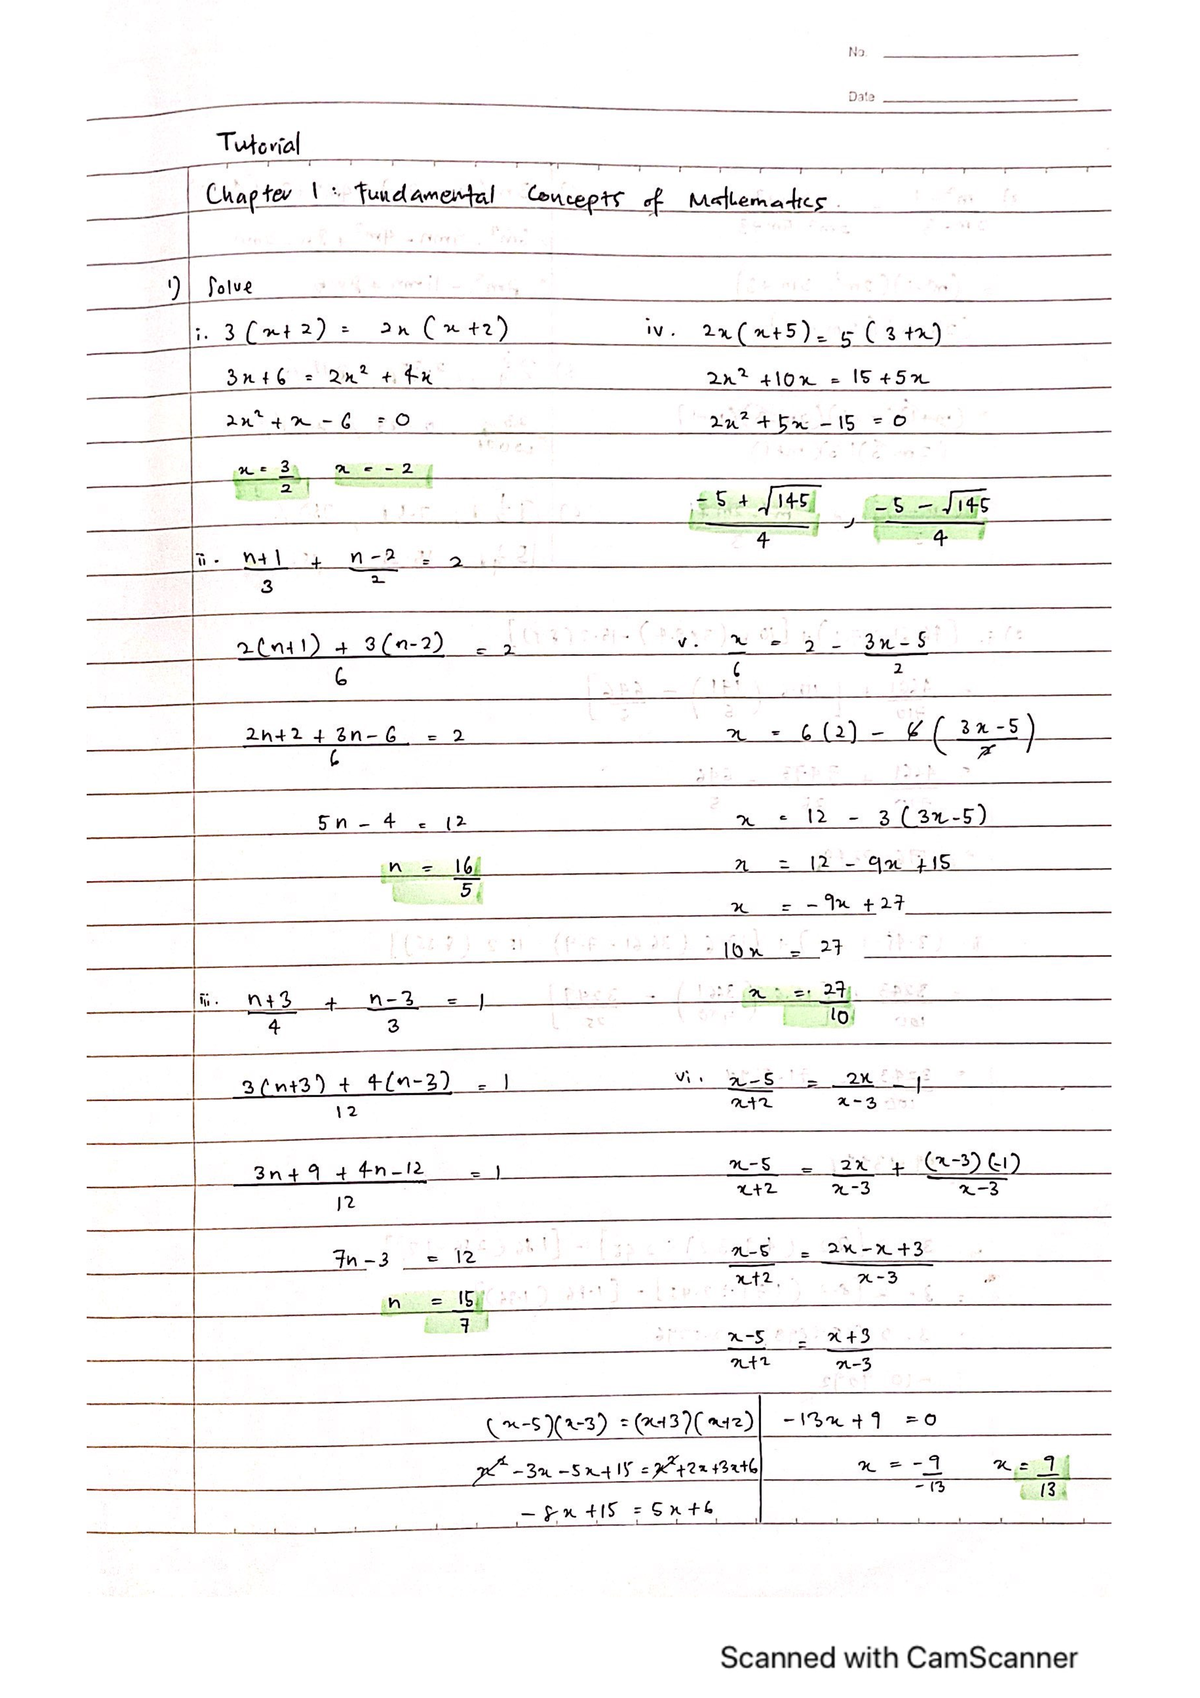 No.
Date
Tutorial
Chapter 1 : Fundamental Concepts of Mathematics.
1) Solve
i. 3(x+2) = 2x(x+2)
3x+6 = 2x² + 4x
2x² + x - 6 = 0
x = 3/2 x = -2
ii. n+1/3 + n-2/2 = 2
2(n+1) + 3(n-2)/6 = 2
2n+2 + 3n-6/6 = 2
5n - 4 = 12
n = 16/5
iii. n+3/4 + n-3/3 = 1
3(n+3) + 4(n-3)/12 = 1
3n+9 + 4n-12/12 = 1
7n-3 = 12
n = 15/7
iv. 2x(x+5) = 5(3+x)
2x² +10x = 15+5x
2x² + 5x - 15 = 0
-5 + √145/4 , -5 - √145/4
v. x/6 = 2 - 3x-5/2
x = 6(2) - 6(3x-5/2)
x = 12 - 3(3x-5)
x = 12 - 9x +15
x = -9x +27
10x = 27
x = 27/10
vi. x-5/x+2 = 2x/x-3 - 1
x-5/x+2 = 2x/x-3 + (x-3)(-1)/x-3
x-5/x+2 = 2x-x+3/x-3
x-5/x+2 = x+3/x-3
(x-5)(x-3) = (x+3)(x+2)
x² -3x -5x+15 = x²+2x+3x+6
-8x +15 = 5x+6
-13x + 9 = 0
x = -9/-13 x = 9/13
Scanned with CamScanner